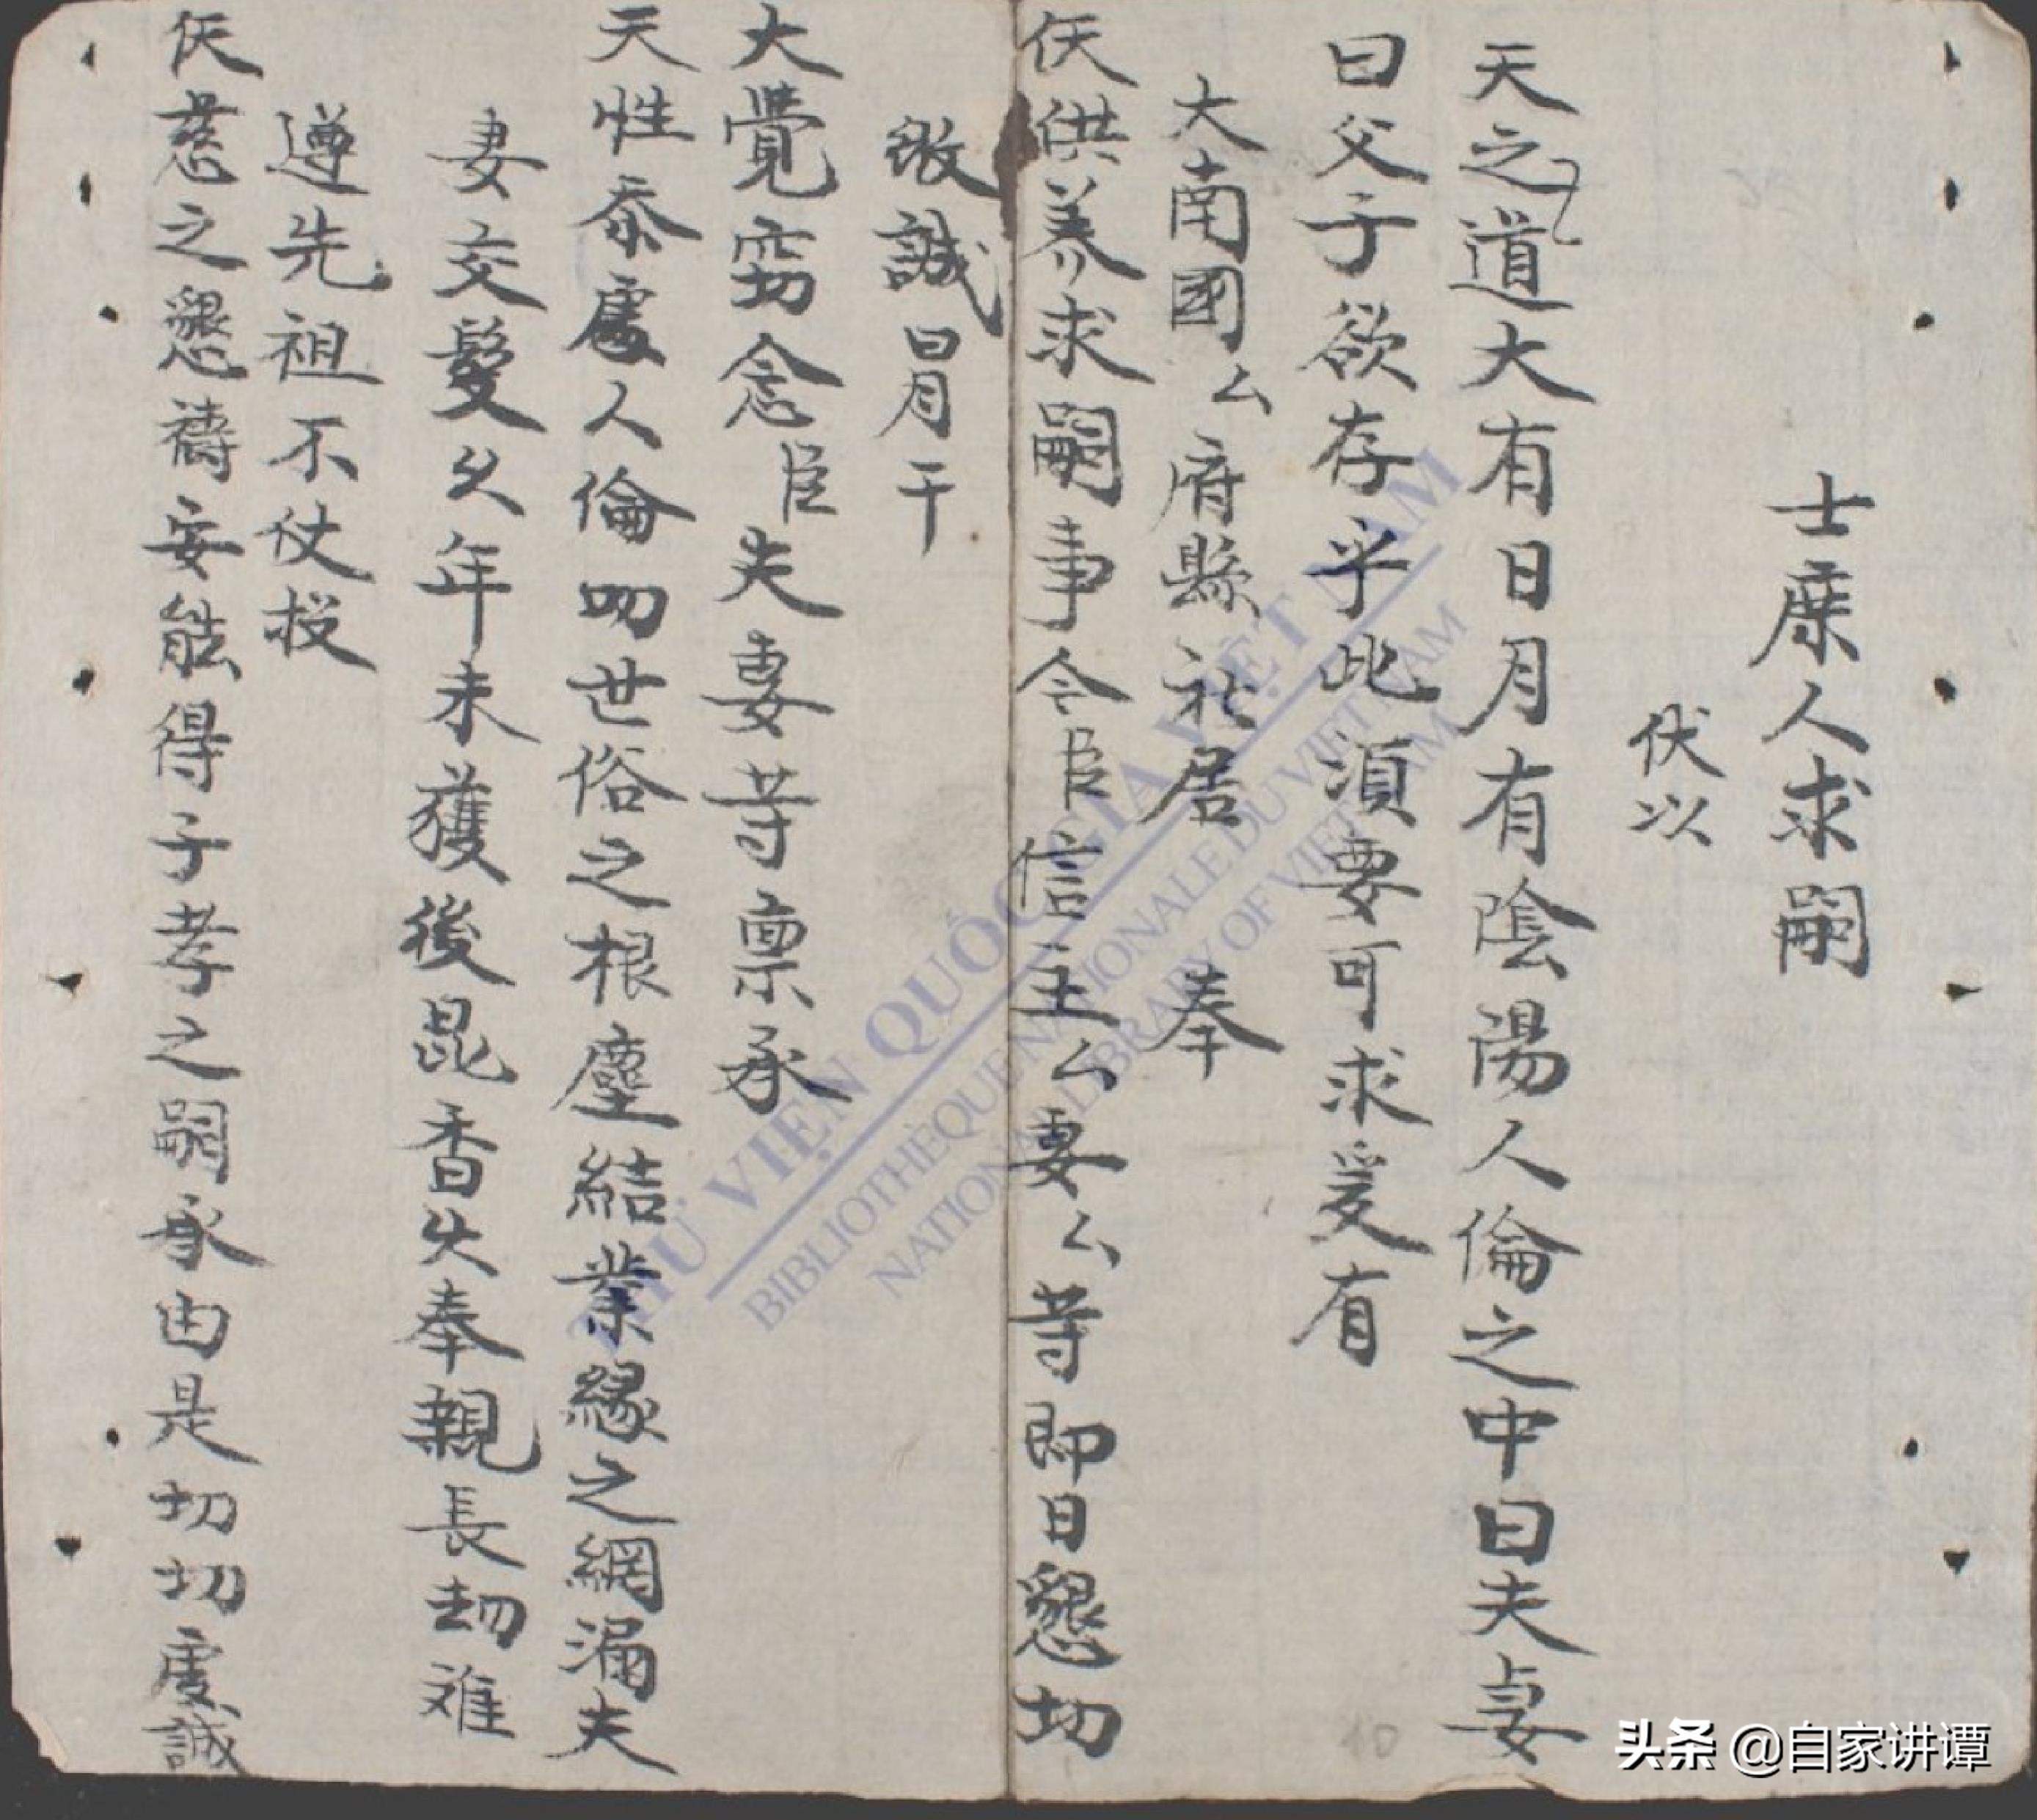 士庶人求嗣
伏以
天之道大有日月有陰陽人倫之中曰夫妻
曰父子欲存乎此湏要可求爰有
大南國厶府縣社居 奉
仸供养求嗣事今臣信主厶妻厶等即日懇切
誠冒干
大覺窃念臣夫妻等禀承
天性忝處人倫叨世俗之根塵結業緣之網漏夫
妻交髮久年未獲後昆香火奉親長劫难
遵先祖不仗投
仸慈之懇禱安能得子孝之嗣承由是切切虔誠
THƯ VIỆN QUỐC GIA VIỆT NAM
BIBLIOTHÈQUE NATIONALE DU VIET NAM
NATIONAL LIBRARY OF VIETNAM
10
头条 @自家讲谭